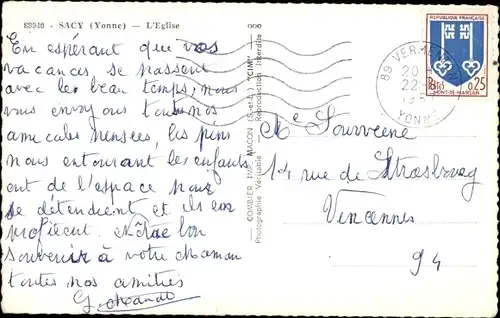 89940 - SACY (Yonne) - L'Eglise
En espérant que vos
vacances se passent
avec les beau temps, nous
vous envoyons toutes nos
amicales pensées, les
nous entourant les enfants
ont de l'espace pour
se détendre et ils en
profitent. Notre bon
souvenir à votre Maman
toutes nos amitiés
COMBIER IMP. MACON (S.-et-L.) "CIM"
Photographie Véritable - Reproduction Interdite
REPUBLIQUE FRANÇAISE
POSTES 0,25
MONT-DE-MARSAN
89 VERMENTON
YONNE
14 rue de Strasbourg
Vincennes
94